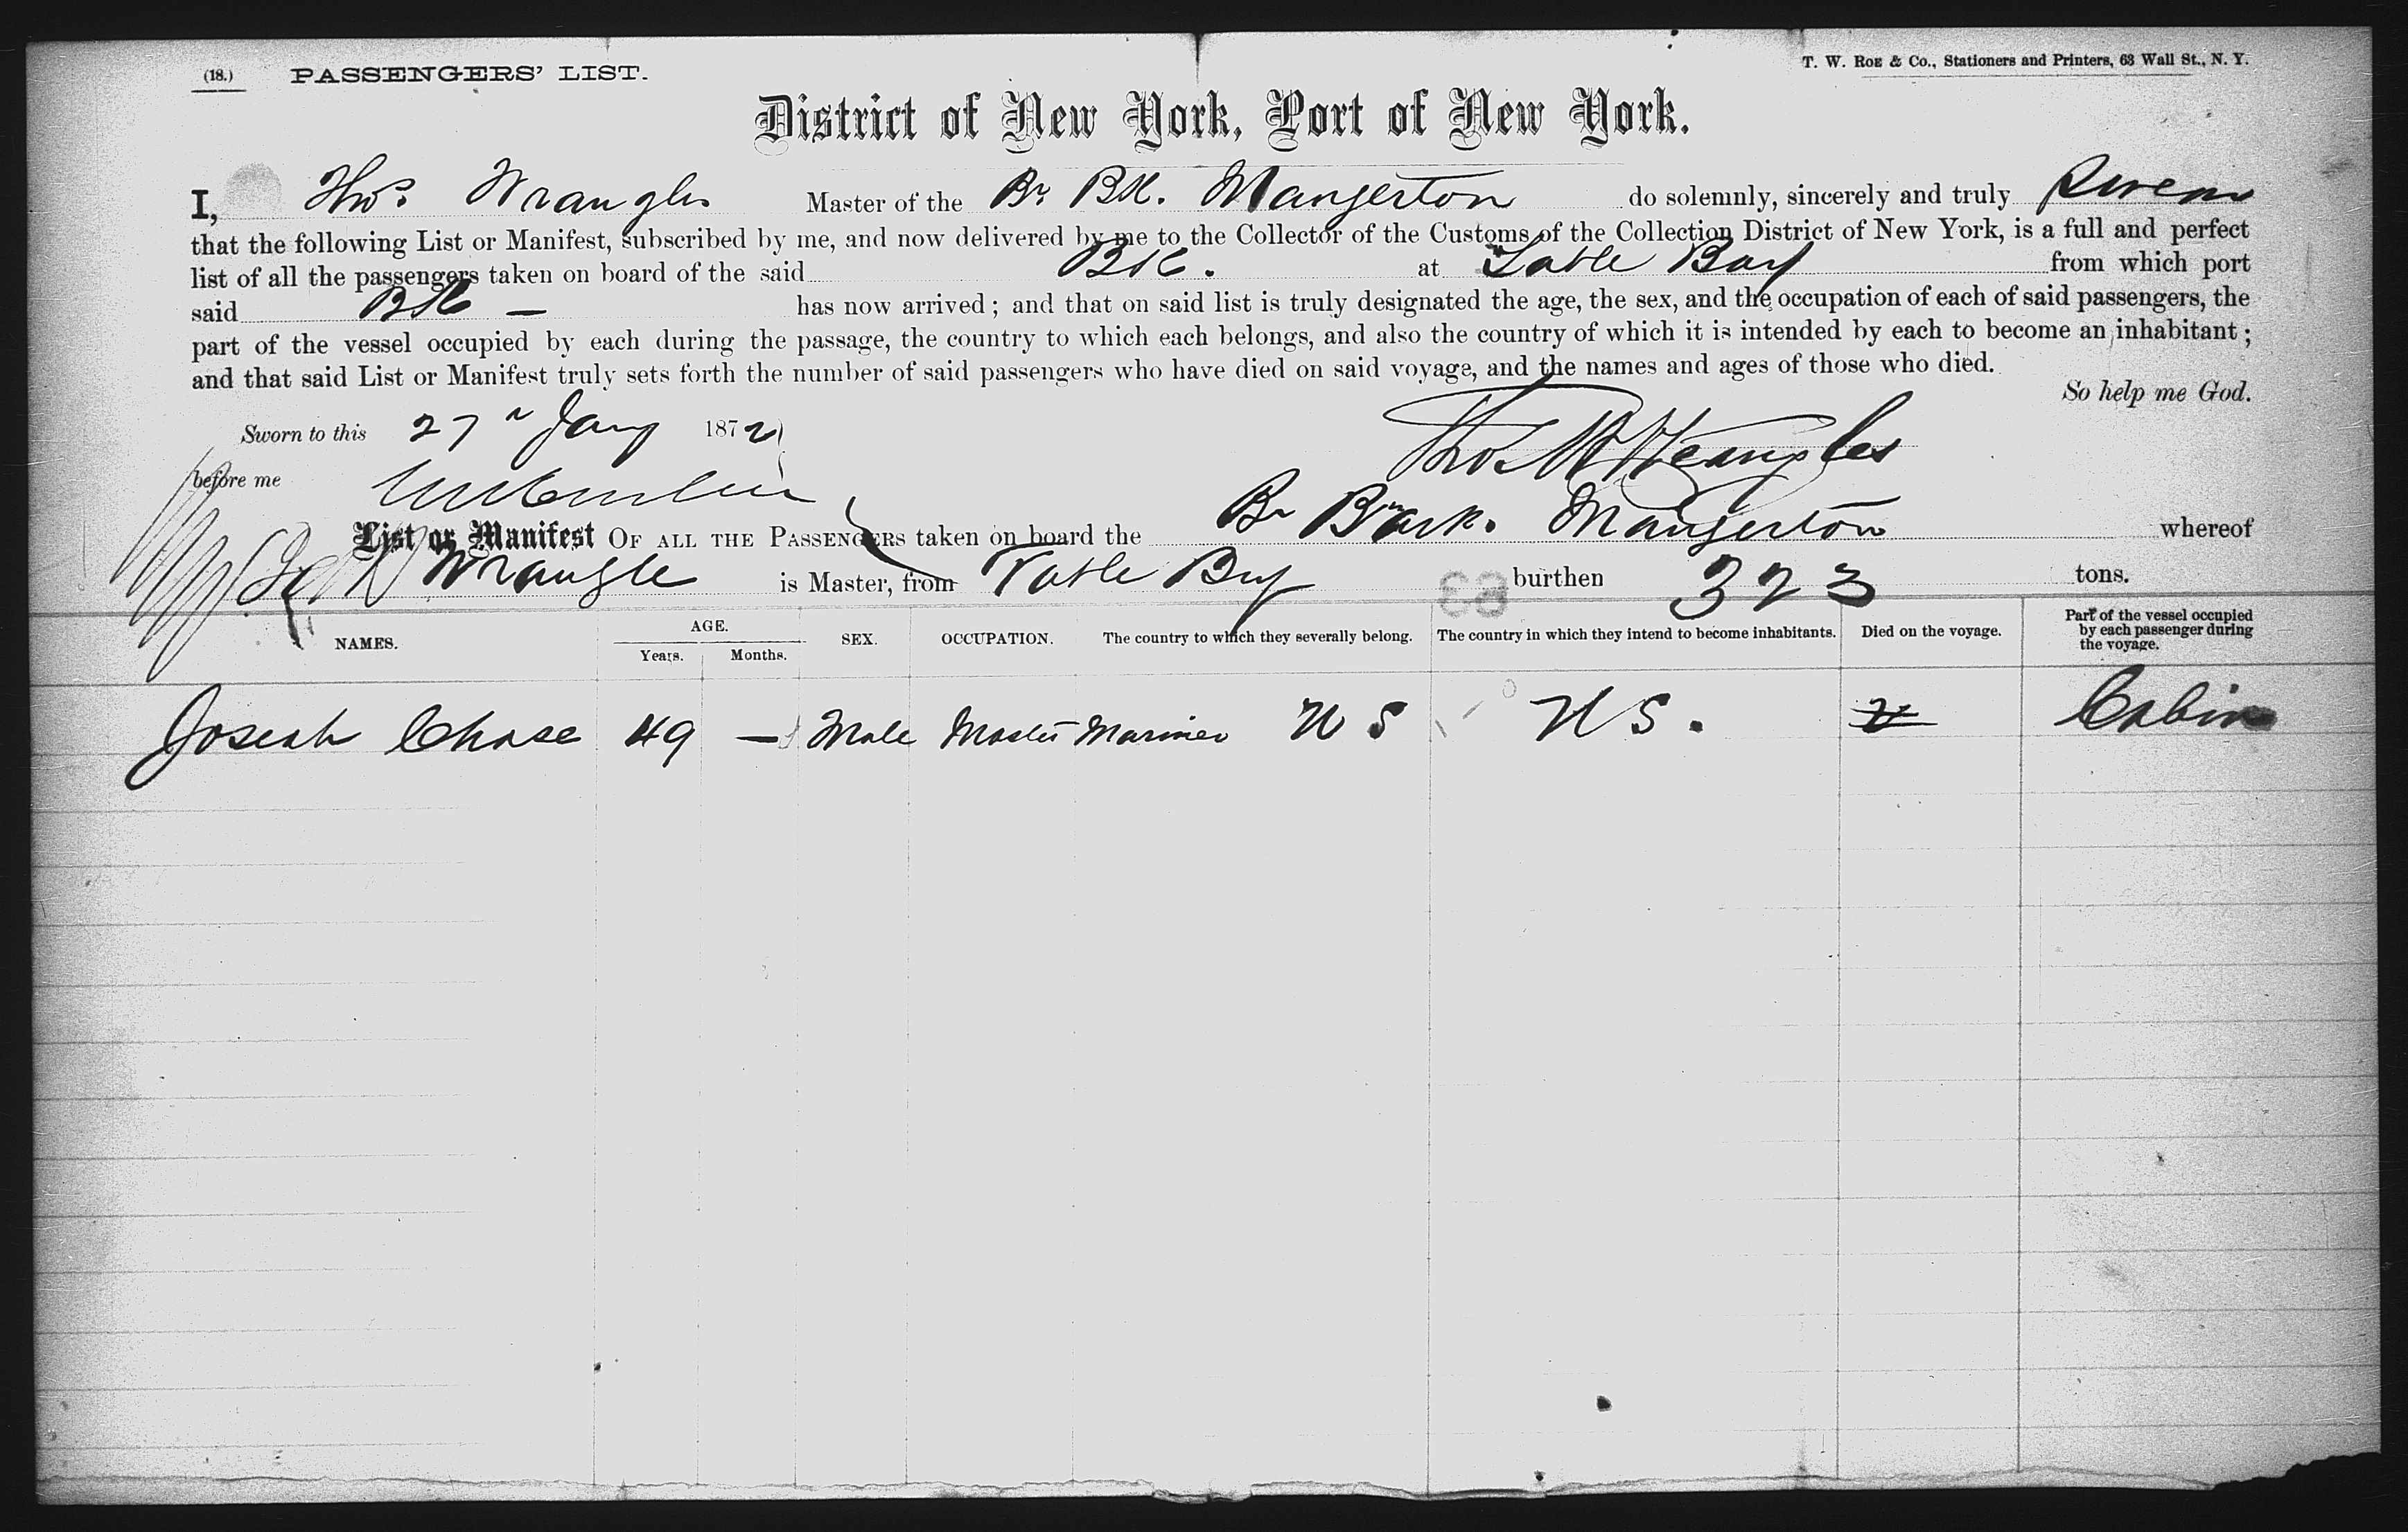 (18.) PASSENGERS' LIST.
T. W. Roe & Co., Stationers and Printers, 63 Wall St., N. Y.
District of New York, Port of New York.
I, Thos Wrangles Master of the Br Bk. Mangerton do solemnly, sincerely and truly Swear
that the following List or Manifest, subscribed by me, and now delivered by me to the Collector of the Customs of the Collection District of New York, is a full and perfect
list of all the passengers taken on board of the said Bk. at Table Bay from which port
said Bk — has now arrived; and that on said list is truly designated the age, the sex, and the occupation of each of said passengers, the
part of the vessel occupied by each during the passage, the country to which each belongs, and also the country of which it is intended by each to become an inhabitant;
and that said List or Manifest truly sets forth the number of said passengers who have died on said voyage, and the names and ages of those who died.
So help me God.
Sworn to this 27 Jany 1872
before me
List or Manifest OF ALL THE PASSENGERS taken on board the Br Bark. Mangerton whereof
Wrangle is Master, from Table Bay burthen 323 tons.
NAMES. AGE. Years. Months. SEX. OCCUPATION. The country to which they severally belong. The country in which they intend to become inhabitants. Died on the voyage. Part of the vessel occupied by each passenger during the voyage.
Joseah Chase 49 — Male Master Mariner US US. Cabin